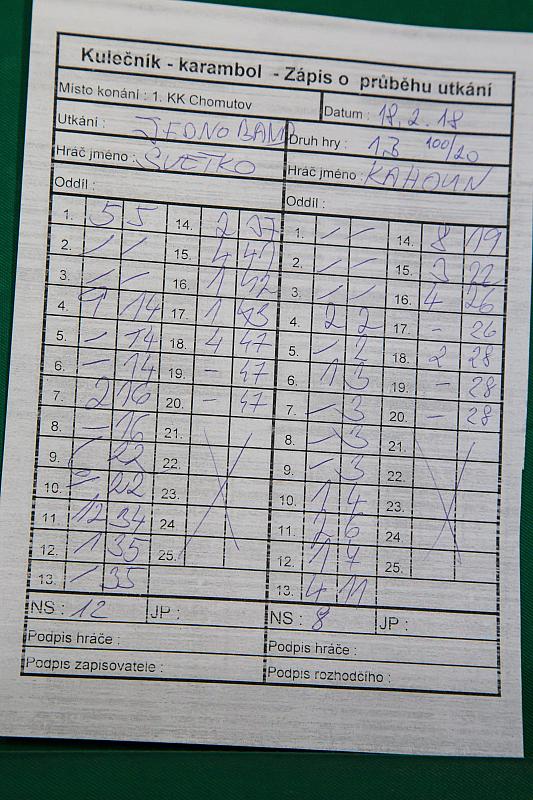 Kulečník - karambol - Zápis o průběhu utkání
Místo konání : 1. KK Chomutov Datum : 18. 2. 18
Utkání : JEDNOBAND Druh hry : 13 100/20
Hráč jméno : SVETKO Hráč jméno : KAHOUN
Oddíl : Oddíl :
1. 5 5 14. 2 37 1. — — 14. 8 19
2. — — 15. 4 41 2. — — 15. 3 22
3. — — 16. 1 42 3. — — 16. 4 26
4. 9 14 17. 1 43 4. 2 2 17. - 26
5. — 14 18. 4 47 5. — 2 18. 2 28
6. — 14 19. - 47 6. 1 3 19. - 28
7. 2 16 20. - 47 7. — 3 20. - 28
8. — 16 21. 8. — 3 21.
9. 22 22. 9. — 3 22.
10. — 22 23. 10. 1 4 23.
11. 12 34 24. 11. 2 6 24.
12. 1 35 25. 12. 1 7 25.
13. — 35 13. 4 11
NS : 12 JP : NS : 8 JP :
Podpis hráče : Podpis hráče :
Podpis zapisovatele : Podpis rozhodčího :